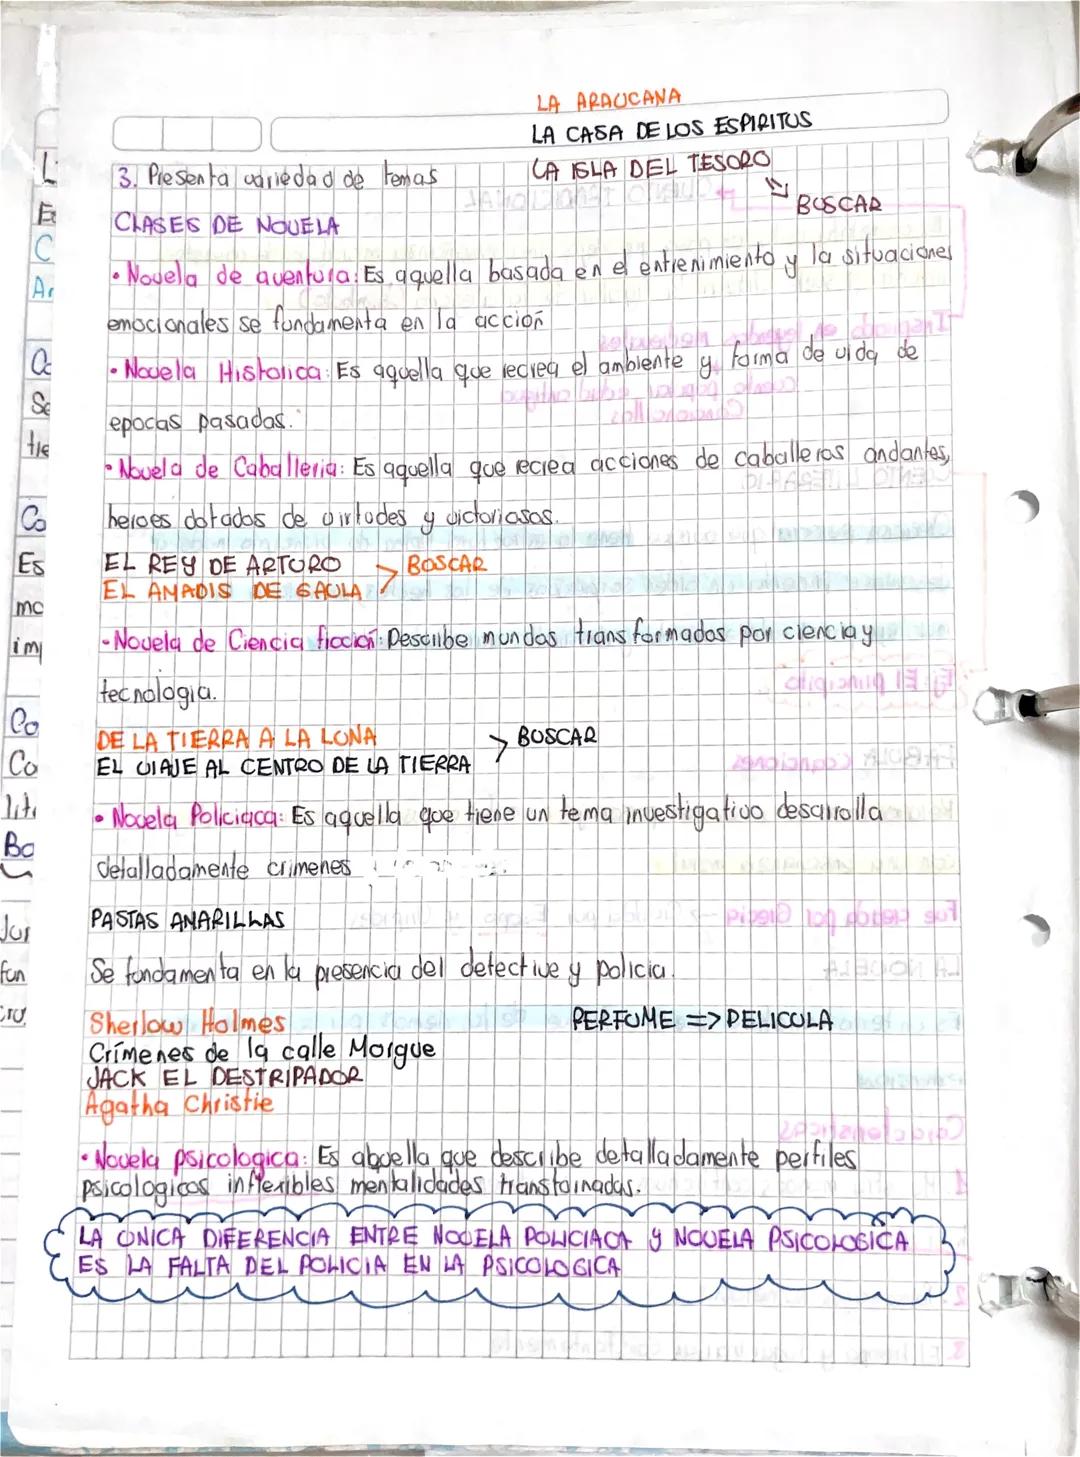 LA ARAUCANA
LA CASA DE LOS ESPIRITUS
LA ISLA DEL TESORO
BUSCAR
3. Presenta variedad de temas
CLASES DE NOVELA
• Novela de aventura: Es aquella basada en el entrenimiento y la situaciones
emocionales se fundamenta en la acción
• Novela Historica: Es aquella que recrea el ambiente y forma de vida de
epocas pasadas.
• Novela de Caballeria: Es aquella que recrea acciones de caballeros andantes,
heroes dotados de virtudes y victoriosos.
EL REY DE ARTURO
EL AMADIS DE GAULA > BUSCAR
- Novela de Ciencia ficción: Describe mundos transformados por ciencia y
tecnologia.
DE LA TIERRA A LA LUNA
EL VIAJE AL CENTRO DE LA TIERRA > BUSCAR
• Novela Policiaca: Es aquella que tiene un tema investigativo desarrolla
detalladamente crimenes
PASTAS AMARILLAS
Se fundamenta en la presencia del detective y policia.
Sherlow Holmes
PERFUME => PELICULA
Crímenes de la calle Morgue
JACK EL DESTRIPADOR
Agatha Christie
• Novela psicologica: Es abuella que describe detalladamente perfiles
psicologicos inflexibles mentalidades transtornadas.
LA UNICA DIFERENCIA ENTRE NOVELA POLICIACA Y NOVELA PSICOLOGICA
ES LA FALTA DEL POLICIA EN LA PSICOLOGICA